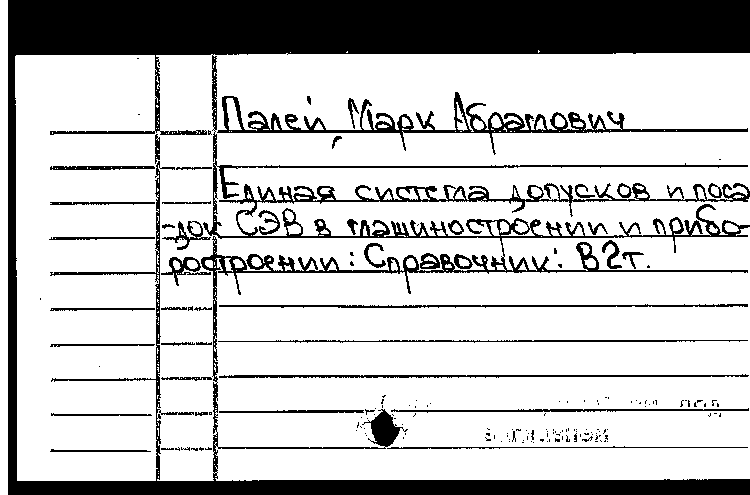 Палей, Марк Абрамович
Единая система допусков и поса
-док СЭВ в машиностроении и прибо-
ростроении: Справочник: В 2 т.